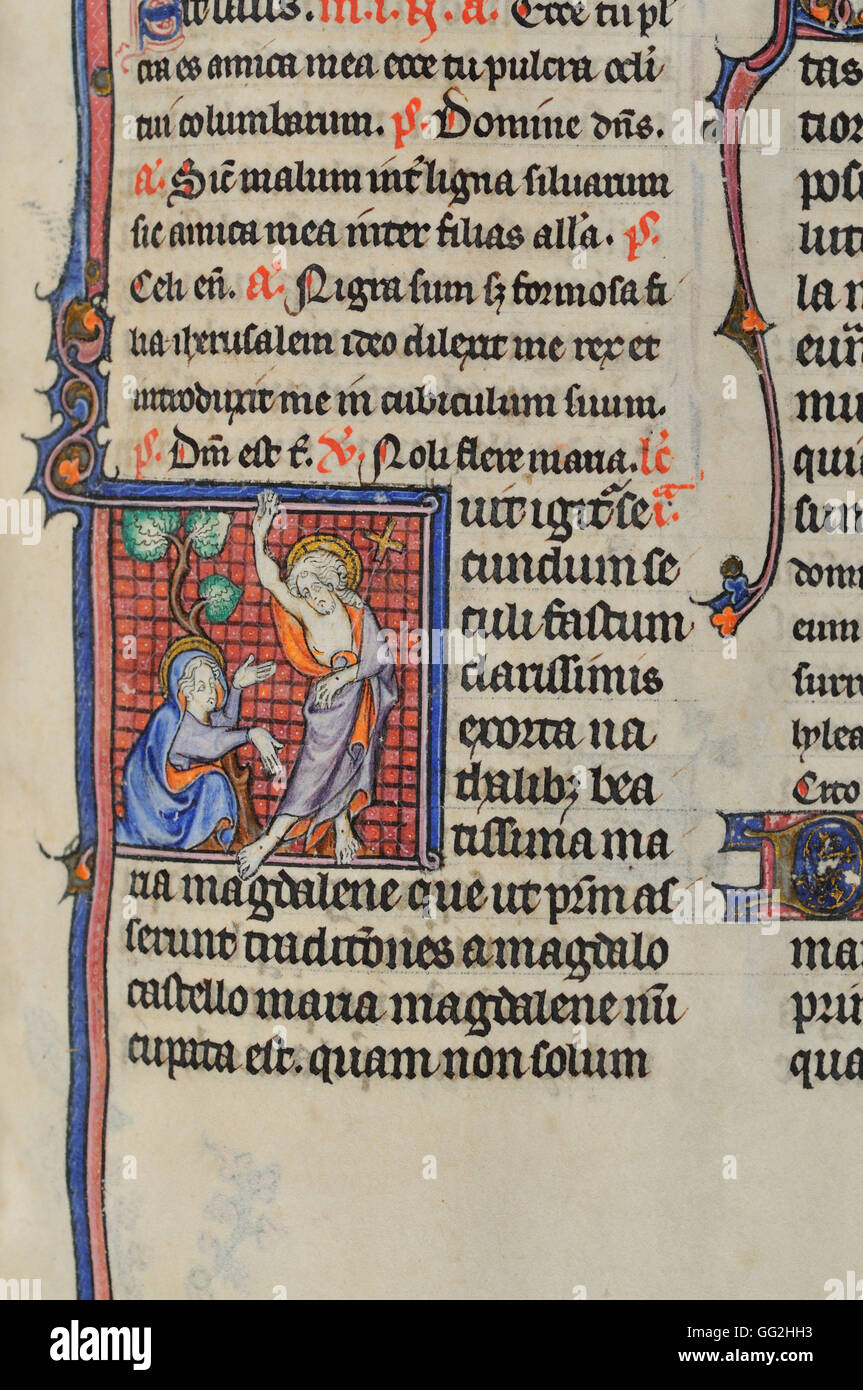 m. i. R. a. Ecce tu pl
cra es amica mea ecce tu pulcra ocli
tui columbarum. ps. Domine dns.
a. Sic malum int ligna siluarum
sic amica mea inter filias alla. ps.
Celi en. a. Nigra sum sz formosa fi
lia iherusalem ideo dilexit me rex et
introduxit me in cubiculum suum.
ps. Dm est t. v. Noli flere maria. lc
uit igitr se a.
cundum se
culi fastum
clarissimis
exorta na
thalibz bea
tissima ma
ria magdalene que ut prm as
serunt traditones a magdalo
castello maria magdalene nu
cupata est. quam non solum
tas
tior
pos
luit
la
eun
mu
qui
sum
domi
eum
surr
lylea
Cito
mai
prin
qua
alamy
Image ID: GG2HH3
www.alamy.com